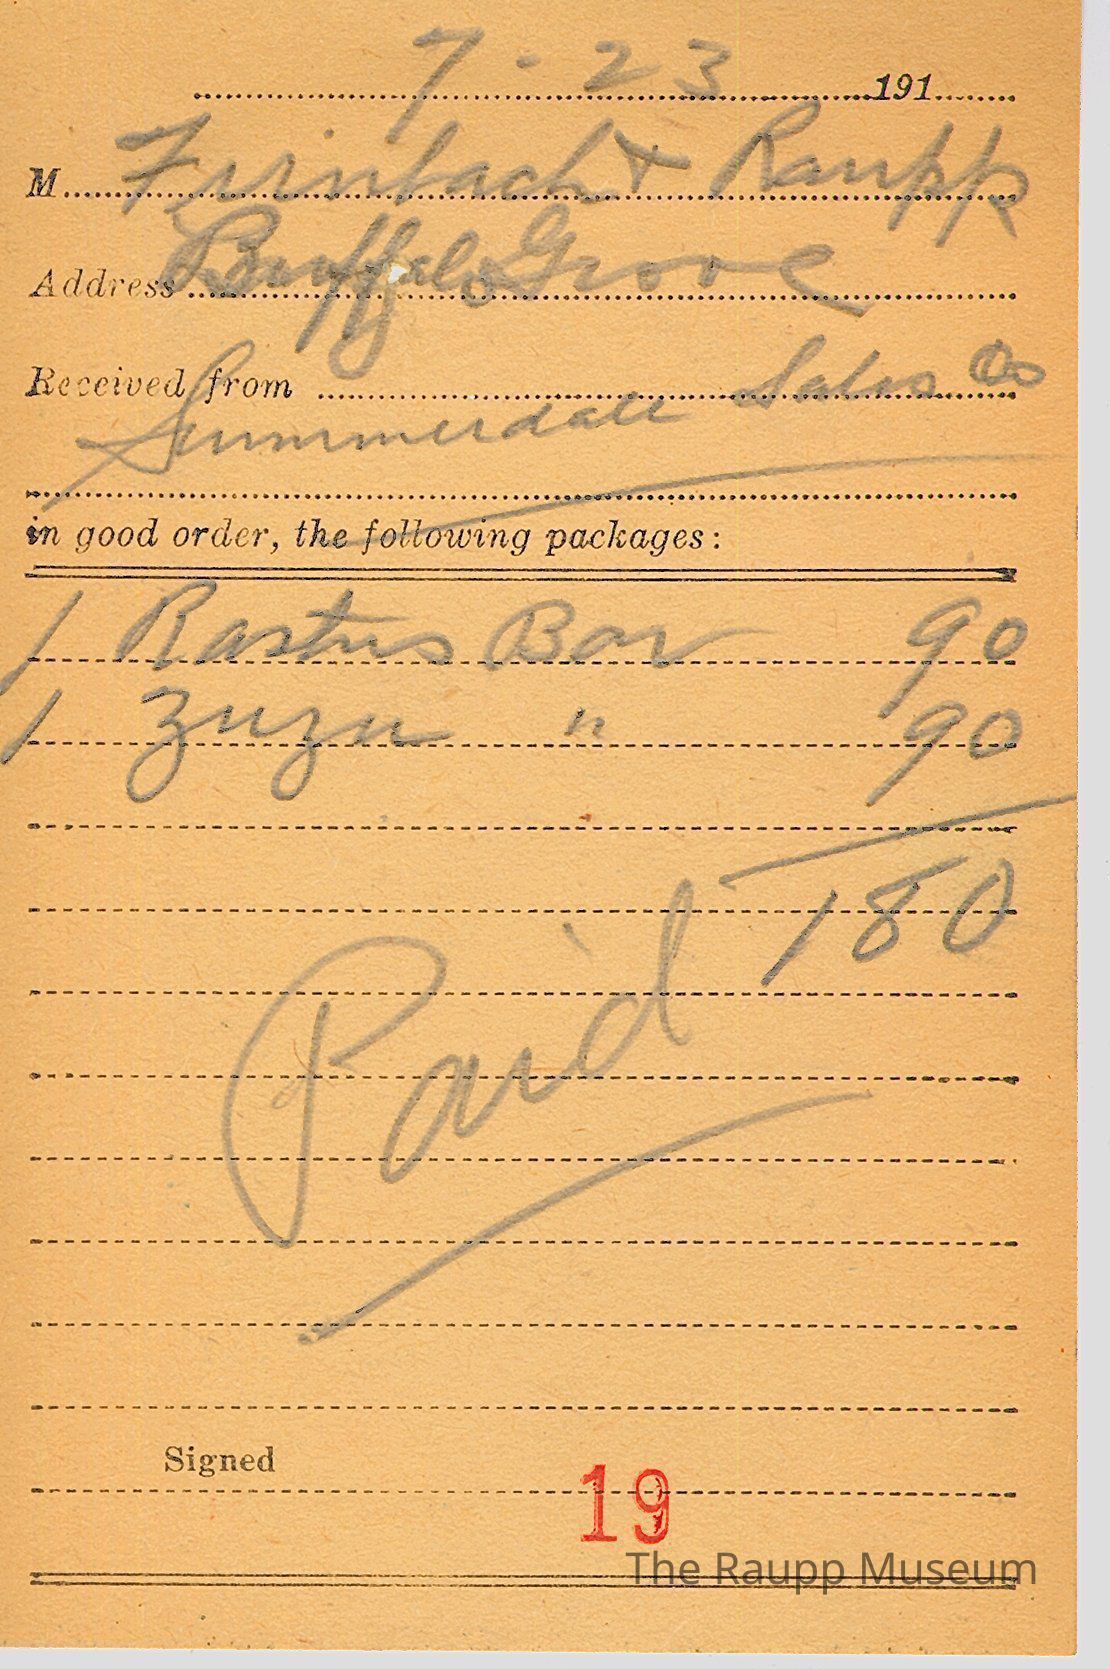 7-23 191
M Firnbach & Raupp
Address Buffalo Grove
Received from Sales Co
Summerdale
in good order, the following packages:
1 Rastus Bar 90
1 Zuzu " 90
180
Paid
Signed
19
The Raupp Museum